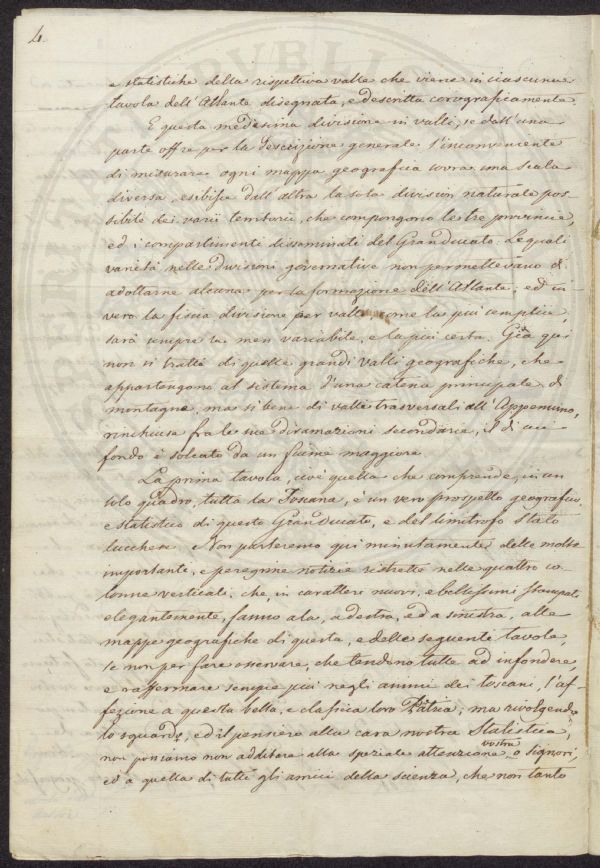 4.
e statistiche della rispettiva valle che viene in ciascuna
tavola dell'Atlante disegnata, e descritta corograficamente.
E questa medesima divisione in valli, se dall'una
parte offre per la descrizione generale l'inconveniente
di misurare ogni mappa geografica sovra una scala
diversa, esibisce dall'altra la sola division naturale pos-
sibile dei varii territorii, che compongono le tre provincie,
ed i compartimenti disseminati del GranDucato. Le quali
varietà nelle divisioni governative non permettevano di
adottarne alcuna per la formazione dell'Atlante; ed in
vero la fisica divisione per valli come la più semplice
sarà sempre la men variabile, e la più certa. Già qui
non si tratta di quelle grandi valli geografiche, che
appartengono al sistema d'una catena principale di
montagne, ma si bene di valli trasversali all'Appennino,
rinchiuse fra le sue diramazioni secondarie, il di cui
fondo è solcato da un fiume maggiore.
La prima tavola, cioè quella che comprende, in un
solo quadro, tutta la Toscana, è un vero prospetto geografico,
e statistico di questo GranDucato, e del limitrofo Stato
lucchese. Non parleremo qui minutamente delle molte
importante, e peregrine notizie ristrette nelle quattro co-
lonne verticali, che, in caratteri nuovi, e bellissimi stampate
elegantemente, fanno ala, a destra, ed a sinistra, alle
mappe geografiche di questa, e delle seguente tavola,
se non per fare osservare, che tendono tutte ad infondere,
e raffermare sempre più negli animi dei toscani, l'af-
fezione a questa bella, e classica loro Patria; ma rivolgendo
lo sguardo, ed il pensiero alla cara nostra Statistica,
non possiamo non additare alla speziale attenzione vostra, o signori,
ed a quella di tutti gli amici della scienza, che non tanto